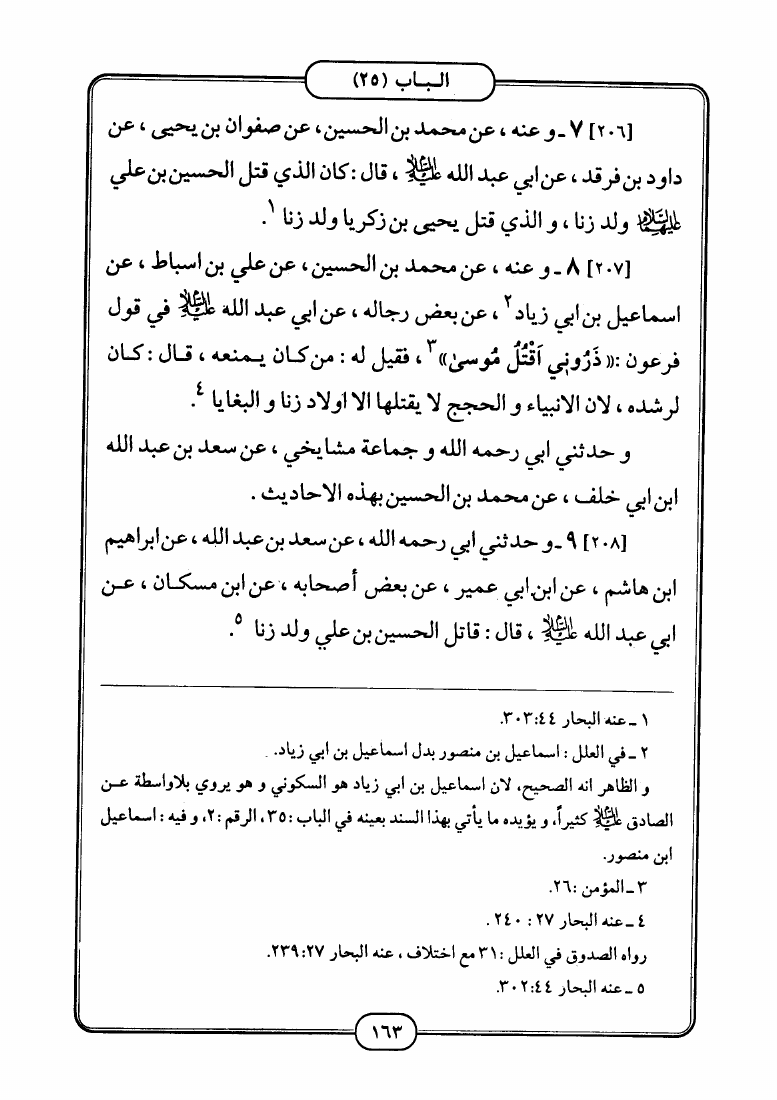 الباب (٢٥)
[٢٠٦] ٧ ـ و عنه ، عن محمد بن الحسين، عن صفوان بن يحيى ، عن
داود بن فرقد ، عن ابي عبد الله عليه السلام ، قال : كان الذي قتل الحسين بن علي
عليهما السلام ولد زنا ، و الذي قتل يحيى بن زكريا ولد زنا ١.
[٢٠٧] ٨ ـ و عنه ، عن محمد بن الحسين، عن علي بن اسباط ، عن
اسماعيل بن ابي زياد ٢ ، عن بعض رجاله ، عن ابي عبد الله عليه السلام في قول
فرعون : «ذَرُوني اَقْتُلُ مُوسىٰ» ٣ ، فقيل له : من كان يمنعه ، قال : كان
لرشده ، لان الانبياء و الحجج لا يقتلها الا اولاد زنا و البغايا ٤.
و حدثني ابي رحمه الله و جماعة مشايخي ، عن سعد بن عبد الله
ابن ابي خلف ، عن محمد بن الحسين بهذه الاحاديث .
[٢٠٨] ٩ ـ و حدثني ابي رحمه الله ، عن سعد بن عبد الله ، عن ابراهيم
ابن هاشم ، عن ابن ابي عمير ، عن بعض أصحابه ، عن ابن مسكان ، عن
ابي عبد الله عليه السلام ، قال : قاتل الحسين بن علي ولد زنا ٥.
١ ـ عنه البحار ٣٠٣:٤٤.
٢ ـ في العلل : اسماعيل بن منصور بدل اسماعيل بن ابي زياد.
و الظاهر انه الصحيح، لان اسماعيل بن ابي زياد هو السكوني و هو يروي بلاواسطة عن
الصادق عليه السلام كثيراً، و يؤيده ما يأتي بهذا السند بعينه في الباب :٣٥، الرقم :٢، و فيه : اسماعيل
ابن منصور.
٣ ـ المؤمن :٢٦.
٤ ـ عنه البحار ٢٧ : ٢٤٠ .
رواه الصدوق في العلل :٣١ مع اختلاف ، عنه البحار ٢٣٩:٢٧.
٥ ـ عنه البحار ٣٠٢:٤٤.
١٦٣